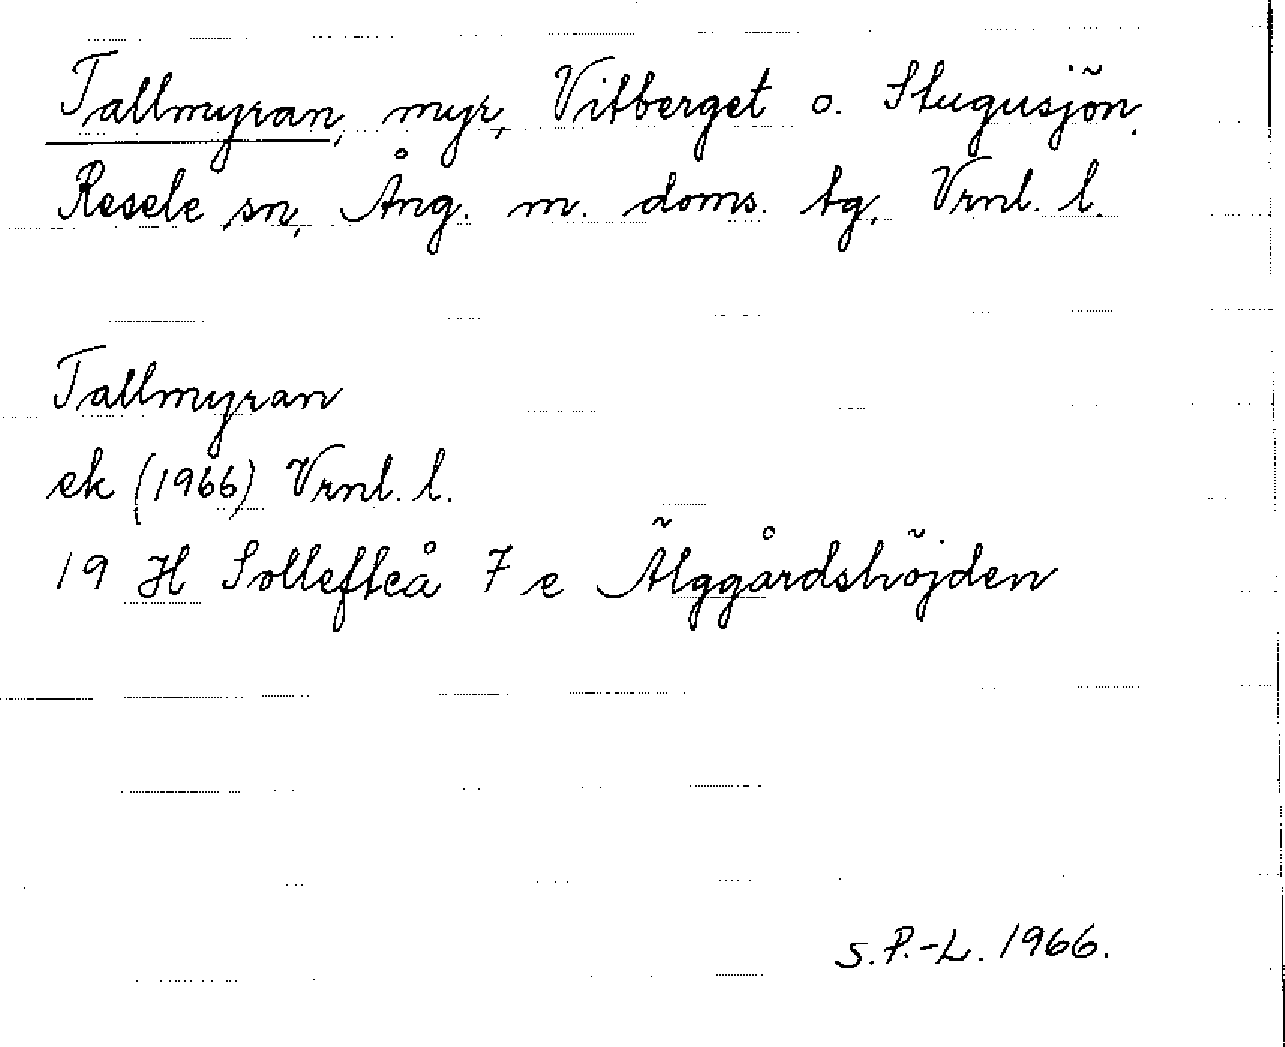 Tallmyran, myr, Vitberget o. Stugusjön,
Resele sn, Ång. m. doms. tg, Vrnl. l.
Tallmyran
ek (1966) Vrnl. l.
19 H Sollefteå 7 e Älggårdshöjden
S.P.-L. 1966.